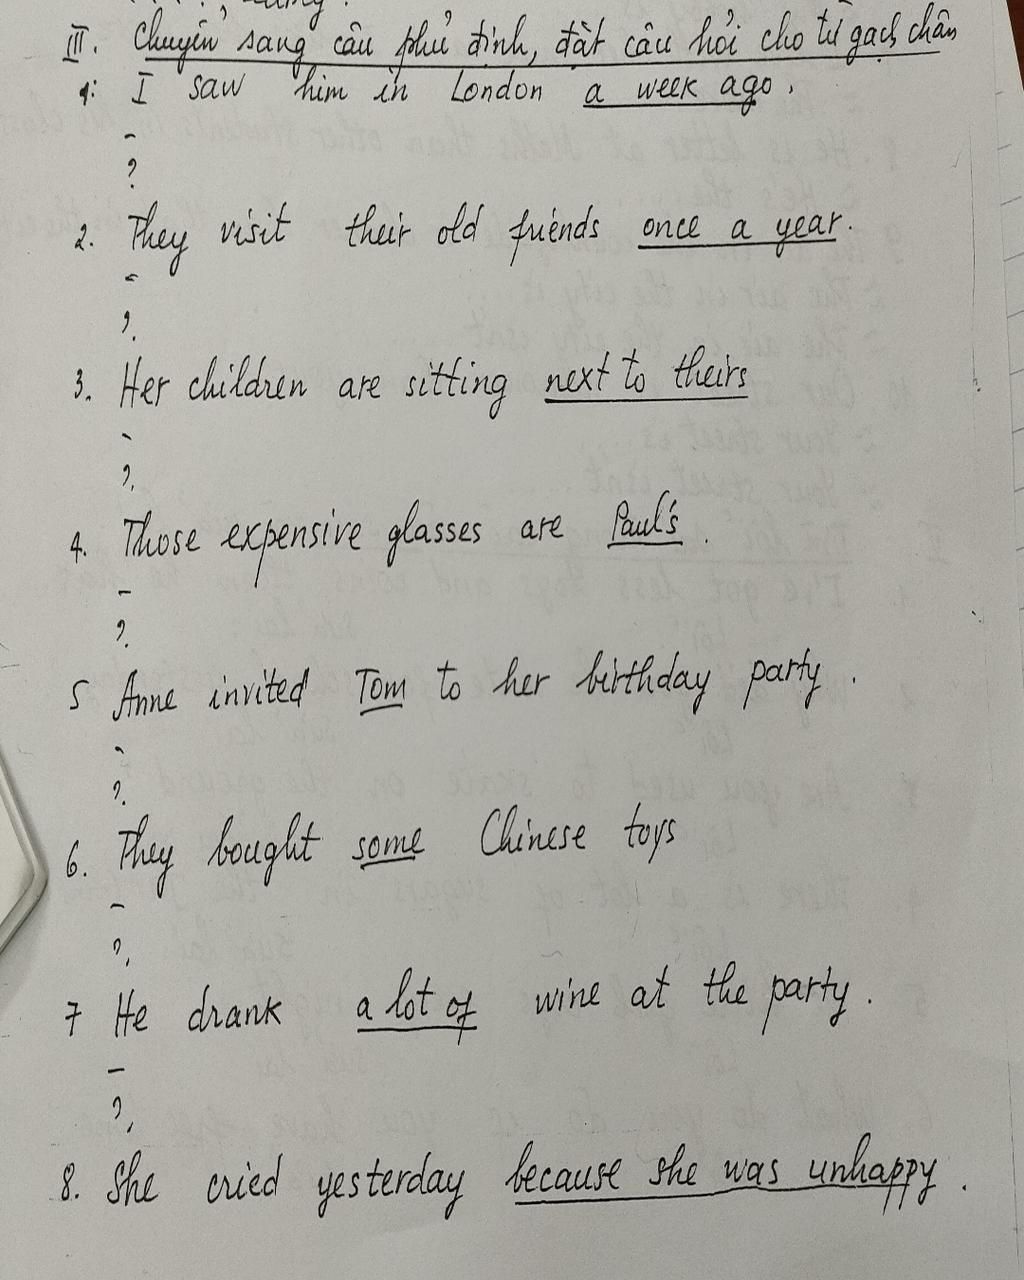 III. Chuyển sang câu phủ định, đặt câu hỏi cho từ gạch chân
1: I saw him in London a week ago.
-
?
2. They visit their old friends once a year.
-
?
3. Her children are sitting next to theirs
-
?
4. Those expensive glasses are Paul's.
-
?
5 Anne invited Tom to her birthday party.
-
?
6. They bought some Chinese toys
-
?
7 He drank a lot of wine at the party.
-
?
8. She cried yesterday because she was unhappy.